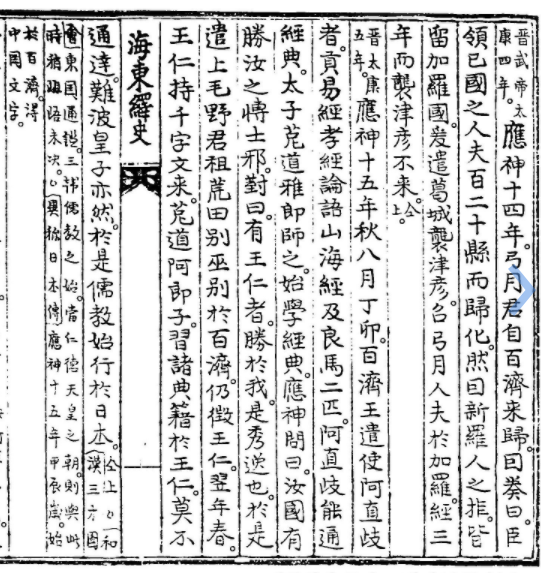 晋武帝太
康四年。
應神十四年。弓月君自百濟來歸。囙奏曰。臣
領已國之人夫百二十縣而歸化。然囙新羅人之拒。皆
留加羅國。爰遣葛城襲津彦。召弓月人夫於加羅。經三
年而襲津彦不來。仝上。
晋太康
五年。
應神十五年秋八月丁卯。百濟王遣使阿直歧
者。貢易經孝經論語山海經及良馬二匹。阿直歧能通
經典。太子菟道雅郎師之。始學經典。應神問曰。汝國有
勝汝之愽士邪。對曰。有王仁者。勝於我。是秀逆也。於是
遣上毛野君祖荒田别巫别於百濟。仍徴王仁。翌年春。
王仁持千字文来。菟道阿郎子。習諸典籍於王仁。莫不
海東繹史
通達。難波皇子亦然。於是儒教始行於日本。
仝上○和
漢三才圖
會東国通鑑。三韓儒教之始。當仁德天皇之朝。則與此
時稍 未決。○異称日本傳應神十五年甲辰歲。始
於百濟得
中国文字。